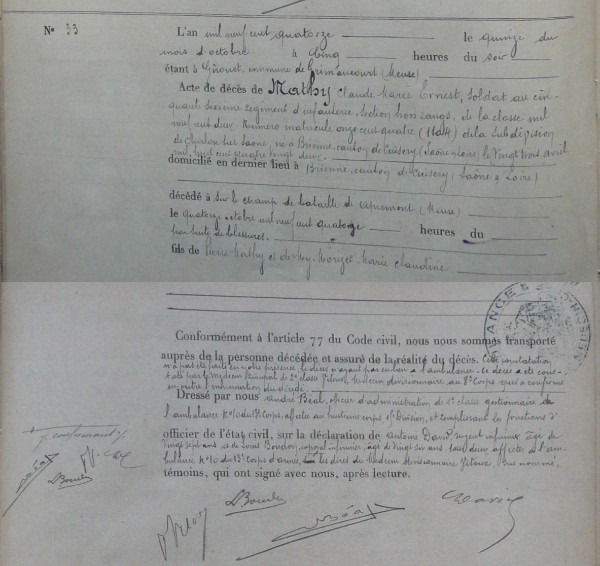 N° 33
L'an mil neuf cent quatorze le quinze du
mois d'octobre à Cinq heures du soir
étant à Gironet, commune de Grimaucourt (Meuse)
Acte de décès de Mathy Claude Marie Ernest, Soldat au cin-
quante sixième régiment d'infanterie section hors rangs, de la classe mil
neuf cent deux Numéro matricule onze cent quatre (1104) de la Subdivision
de Chalon sur Saône, né à Brienne, canton de Cuisery (Saône & Loire) le Vingt trois avril
mil huit cent quatre vingt deux
domicilié en dernier lieu à Brienne, canton de Cuisery (Saône & Loire)
décédé à sur le champ de bataille de Apremont (Meuse)
le quatorze octobre mil neuf cent quatorze heures du
par suite de blessures.
fils de Pierre Mathy et de Marie Claudine
Conformément à l'article 77 du Code civil, nous nous sommes transporté
auprès de la personne décédée et assuré de la réalité du décès. Cette constatation
n'a pas été faite en notre présence le décès n'ayant pas eu lieu à l'ambulance. Ce décès a été cons-
taté par le Médecin principal de 2e classe Jétoux, médecin divisionnaire au 8e Corps qui a confirmé
en outre l'inhumation du décédé.
Dressé par nous André Béal, officier d'administration de 1e classe gestionnaire de
l'ambulance N° 10 du 13e Corps, affectée au huitième corps Division, et remplissant les fonctions d'
officier de l'état civil, sur la déclaration de Antoine David sergent infirmier âgé de
vingt sept ans et de Bourdon, caporal infirmier âgé de vingt six ans tous deux affectés à l'am-
bulance N° 10 du 13e Corps d'armée, les dires du Médecin divisionnaire Jétoux sus nommé,
témoins, qui ont signé avec nous, après lecture.
Béal